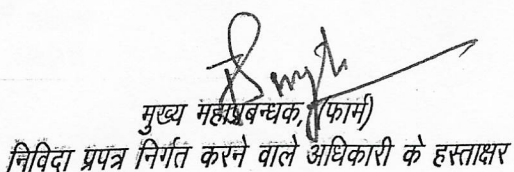 मुख्य महाप्रबन्धक, (फार्म)
निविदा प्रपत्र निर्गत करने वाले अधिकारी के हस्ताक्षर